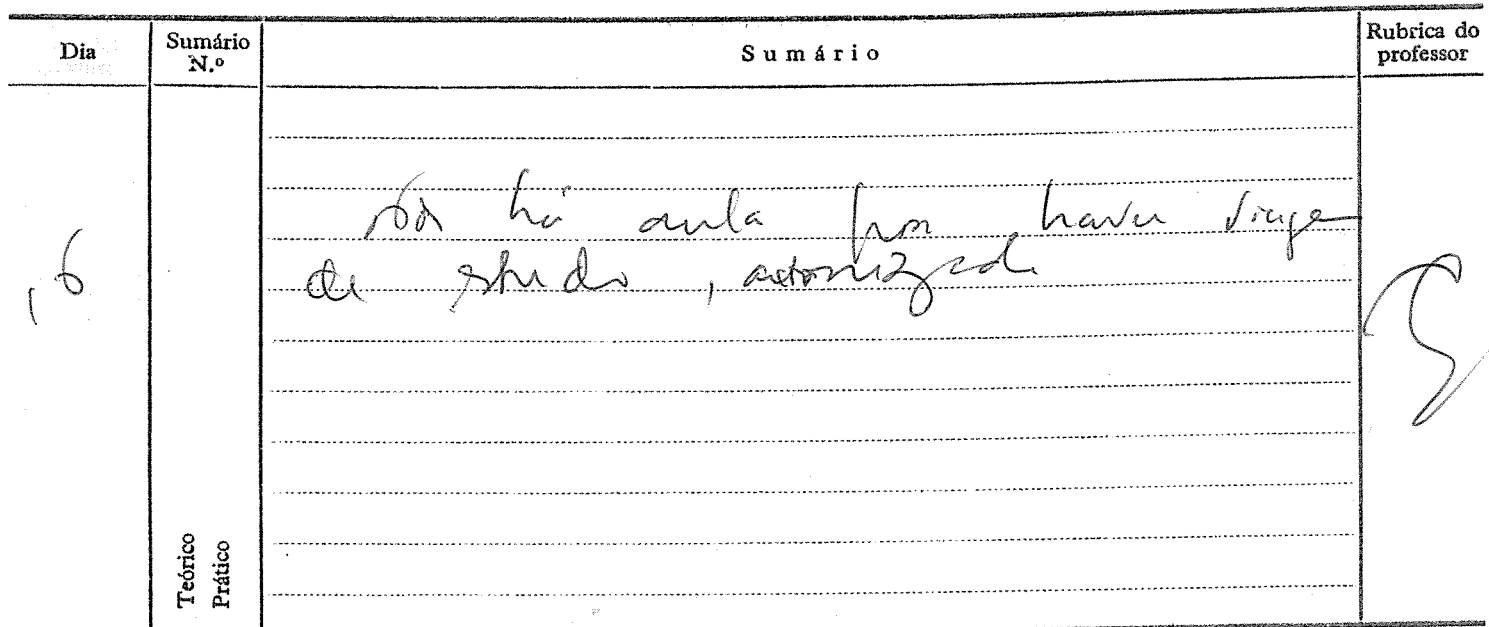 Dia
Sumário N.º
Sumário
Rubrica do professor
16
Não há aula por haver viagem
de estudo, autorizada
Teórico
Prático